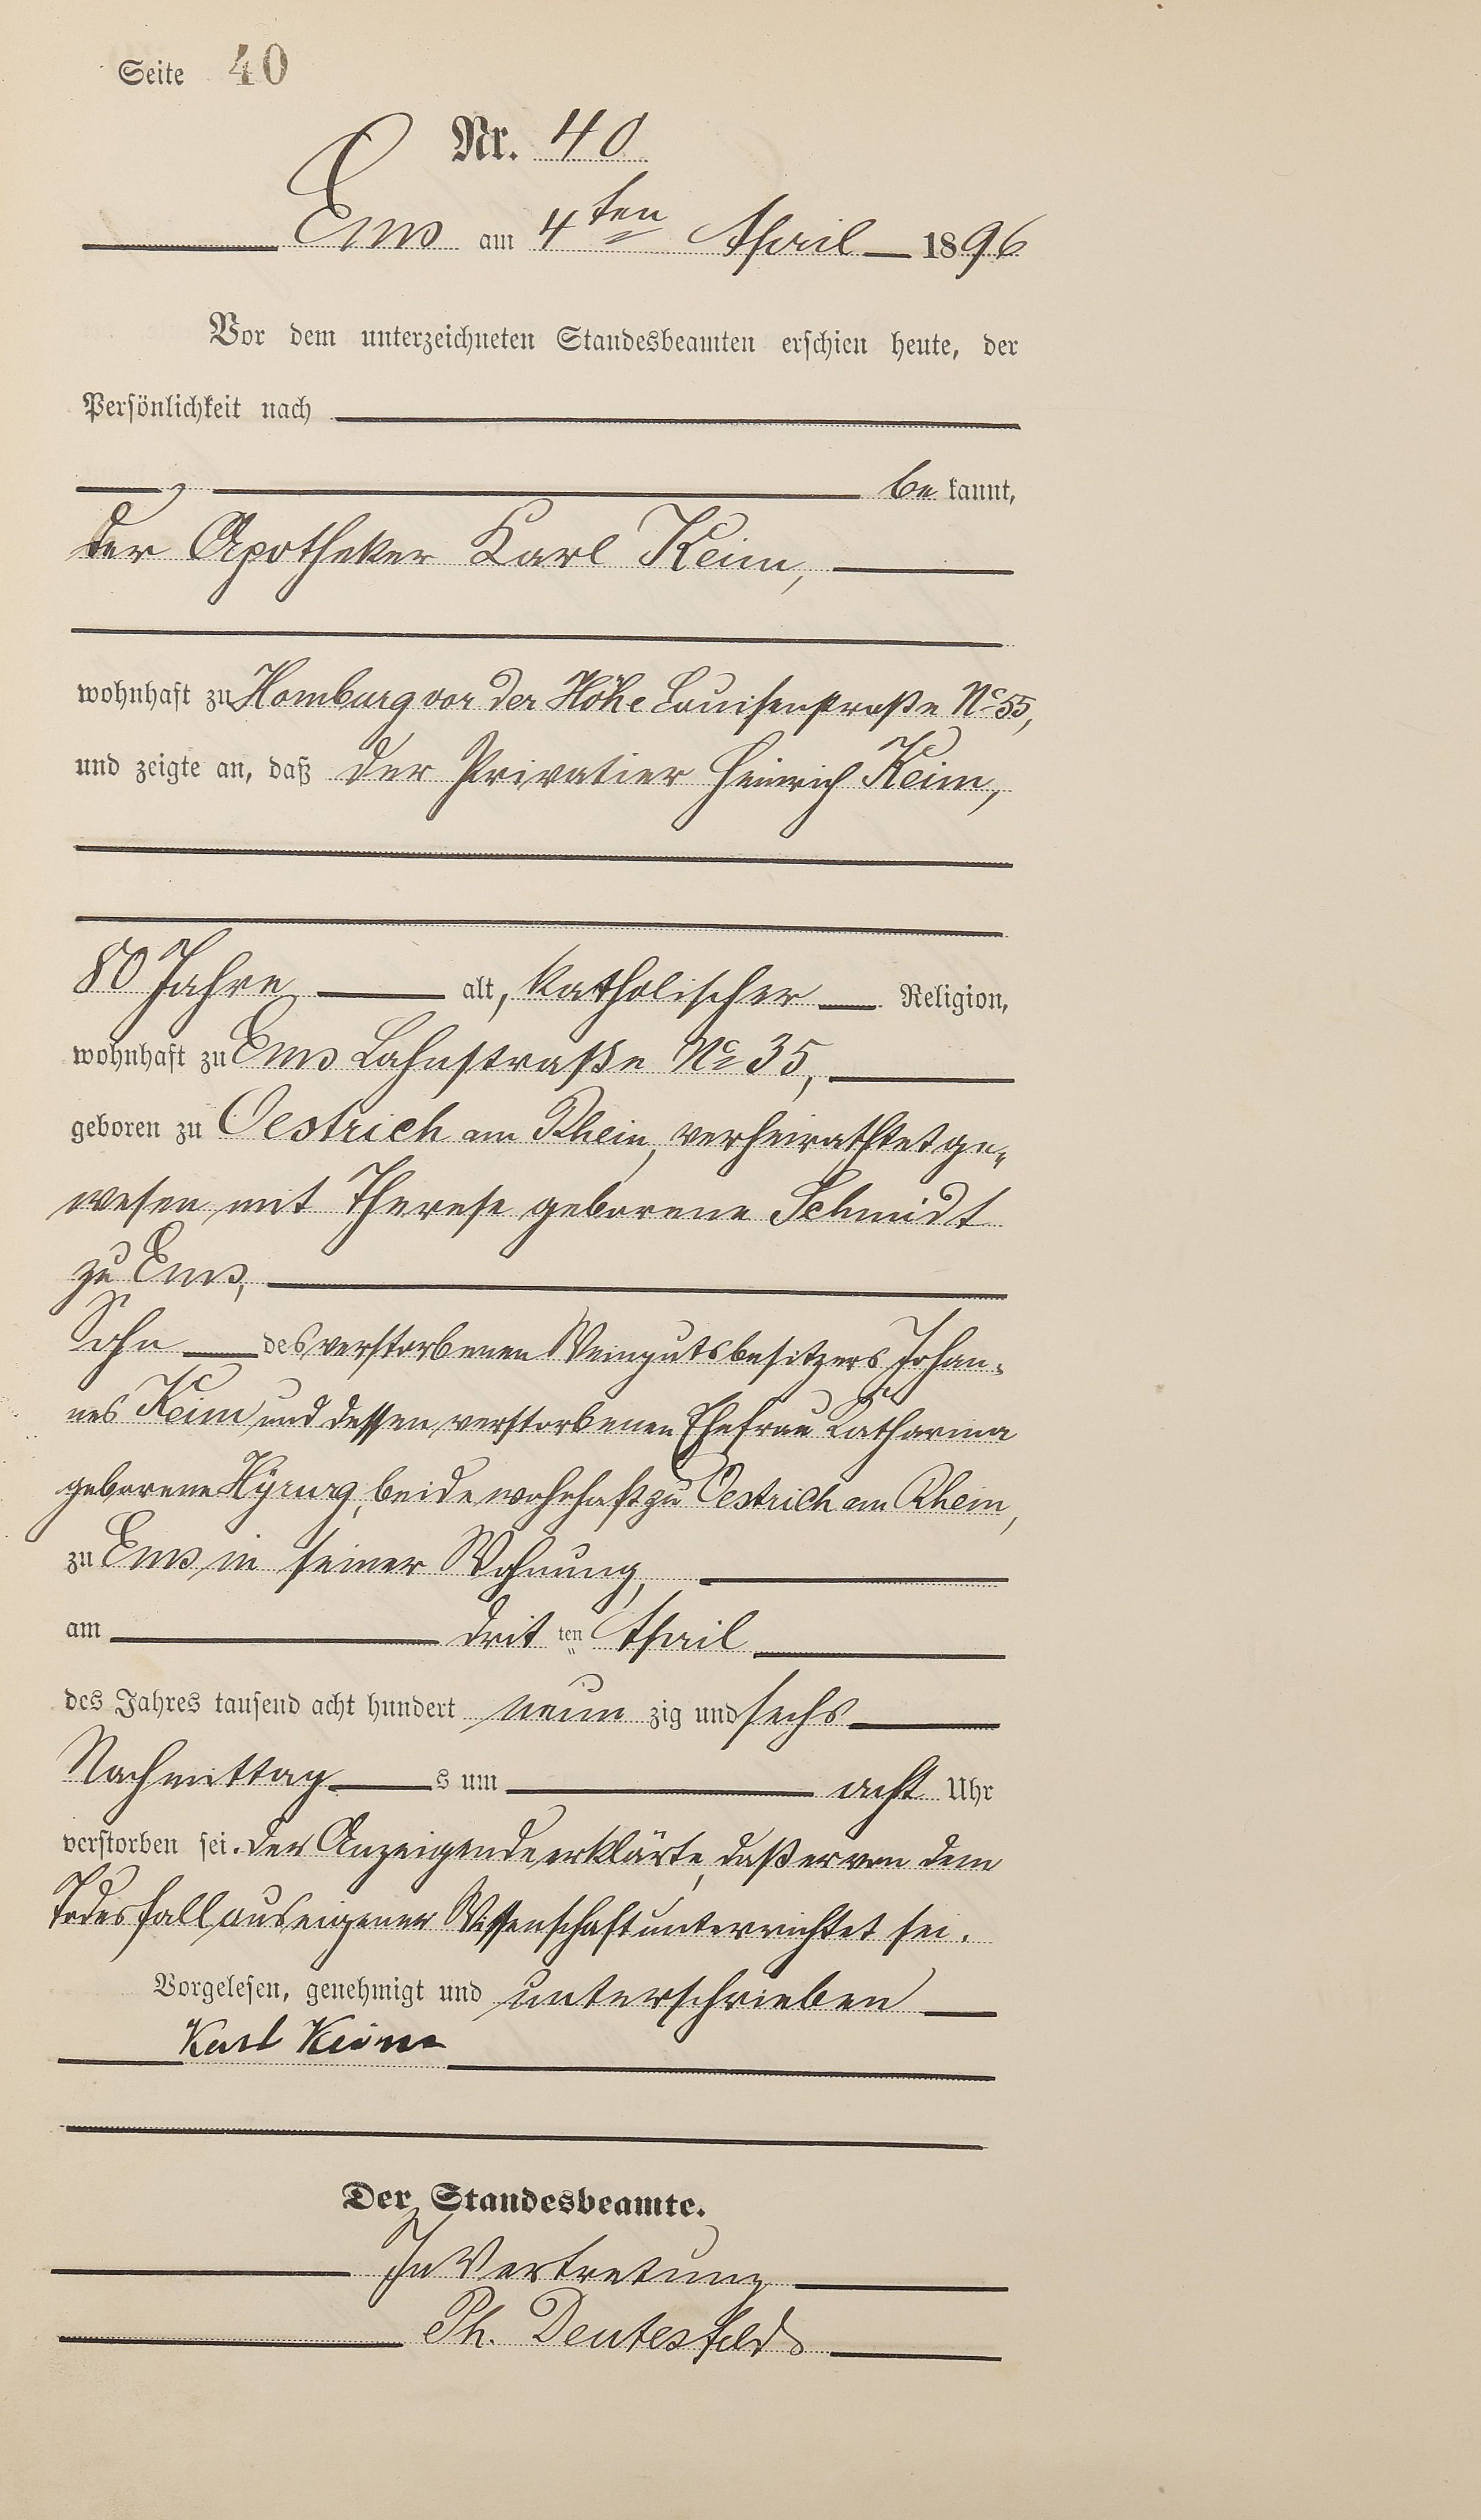 Seite 40
Nr. 40
Ems am 4ten April 1896
Vor dem unterzeichneten Standesbeamten erschien heute, der
Persönlichkeit nach
be kannt,
der Apotheker Karl Keim,
wohnhaft zu Homburg vor der Höhe Louisenstraße No 55,
und zeigte an, daß der Privatier Heinrich Keim,
80 Jahre alt, katholischer Religion,
wohnhaft zu Ems Lahnstraße No 35,
geboren zu Oestrich am Rhein, verheirathet ge-
wesen mit Therese geborene Schmidt
zu Ems,
Sohn des verstorbenen Weingutsbesitzers Johan-
nes Keim und dessen verstorbenen Ehefrau Katharina
geborene beide wohnhaft zu Oestrich am Rhein,
zu Ems in seiner Wohnung,
am drit ten April
des Jahres tausend acht hundert neun zig und sechs
Nachmittag s um acht Uhr
verstorben sei. Der Anzeigende erklärte, daß er von dem
Todesfall aus eigener Wissenschaft unterrichtet sei.
Vorgelesen, genehmigt und unterschrieben
Karl Keim
Der Standesbeamte.
In Vertretung
Ph. Deutesfeld